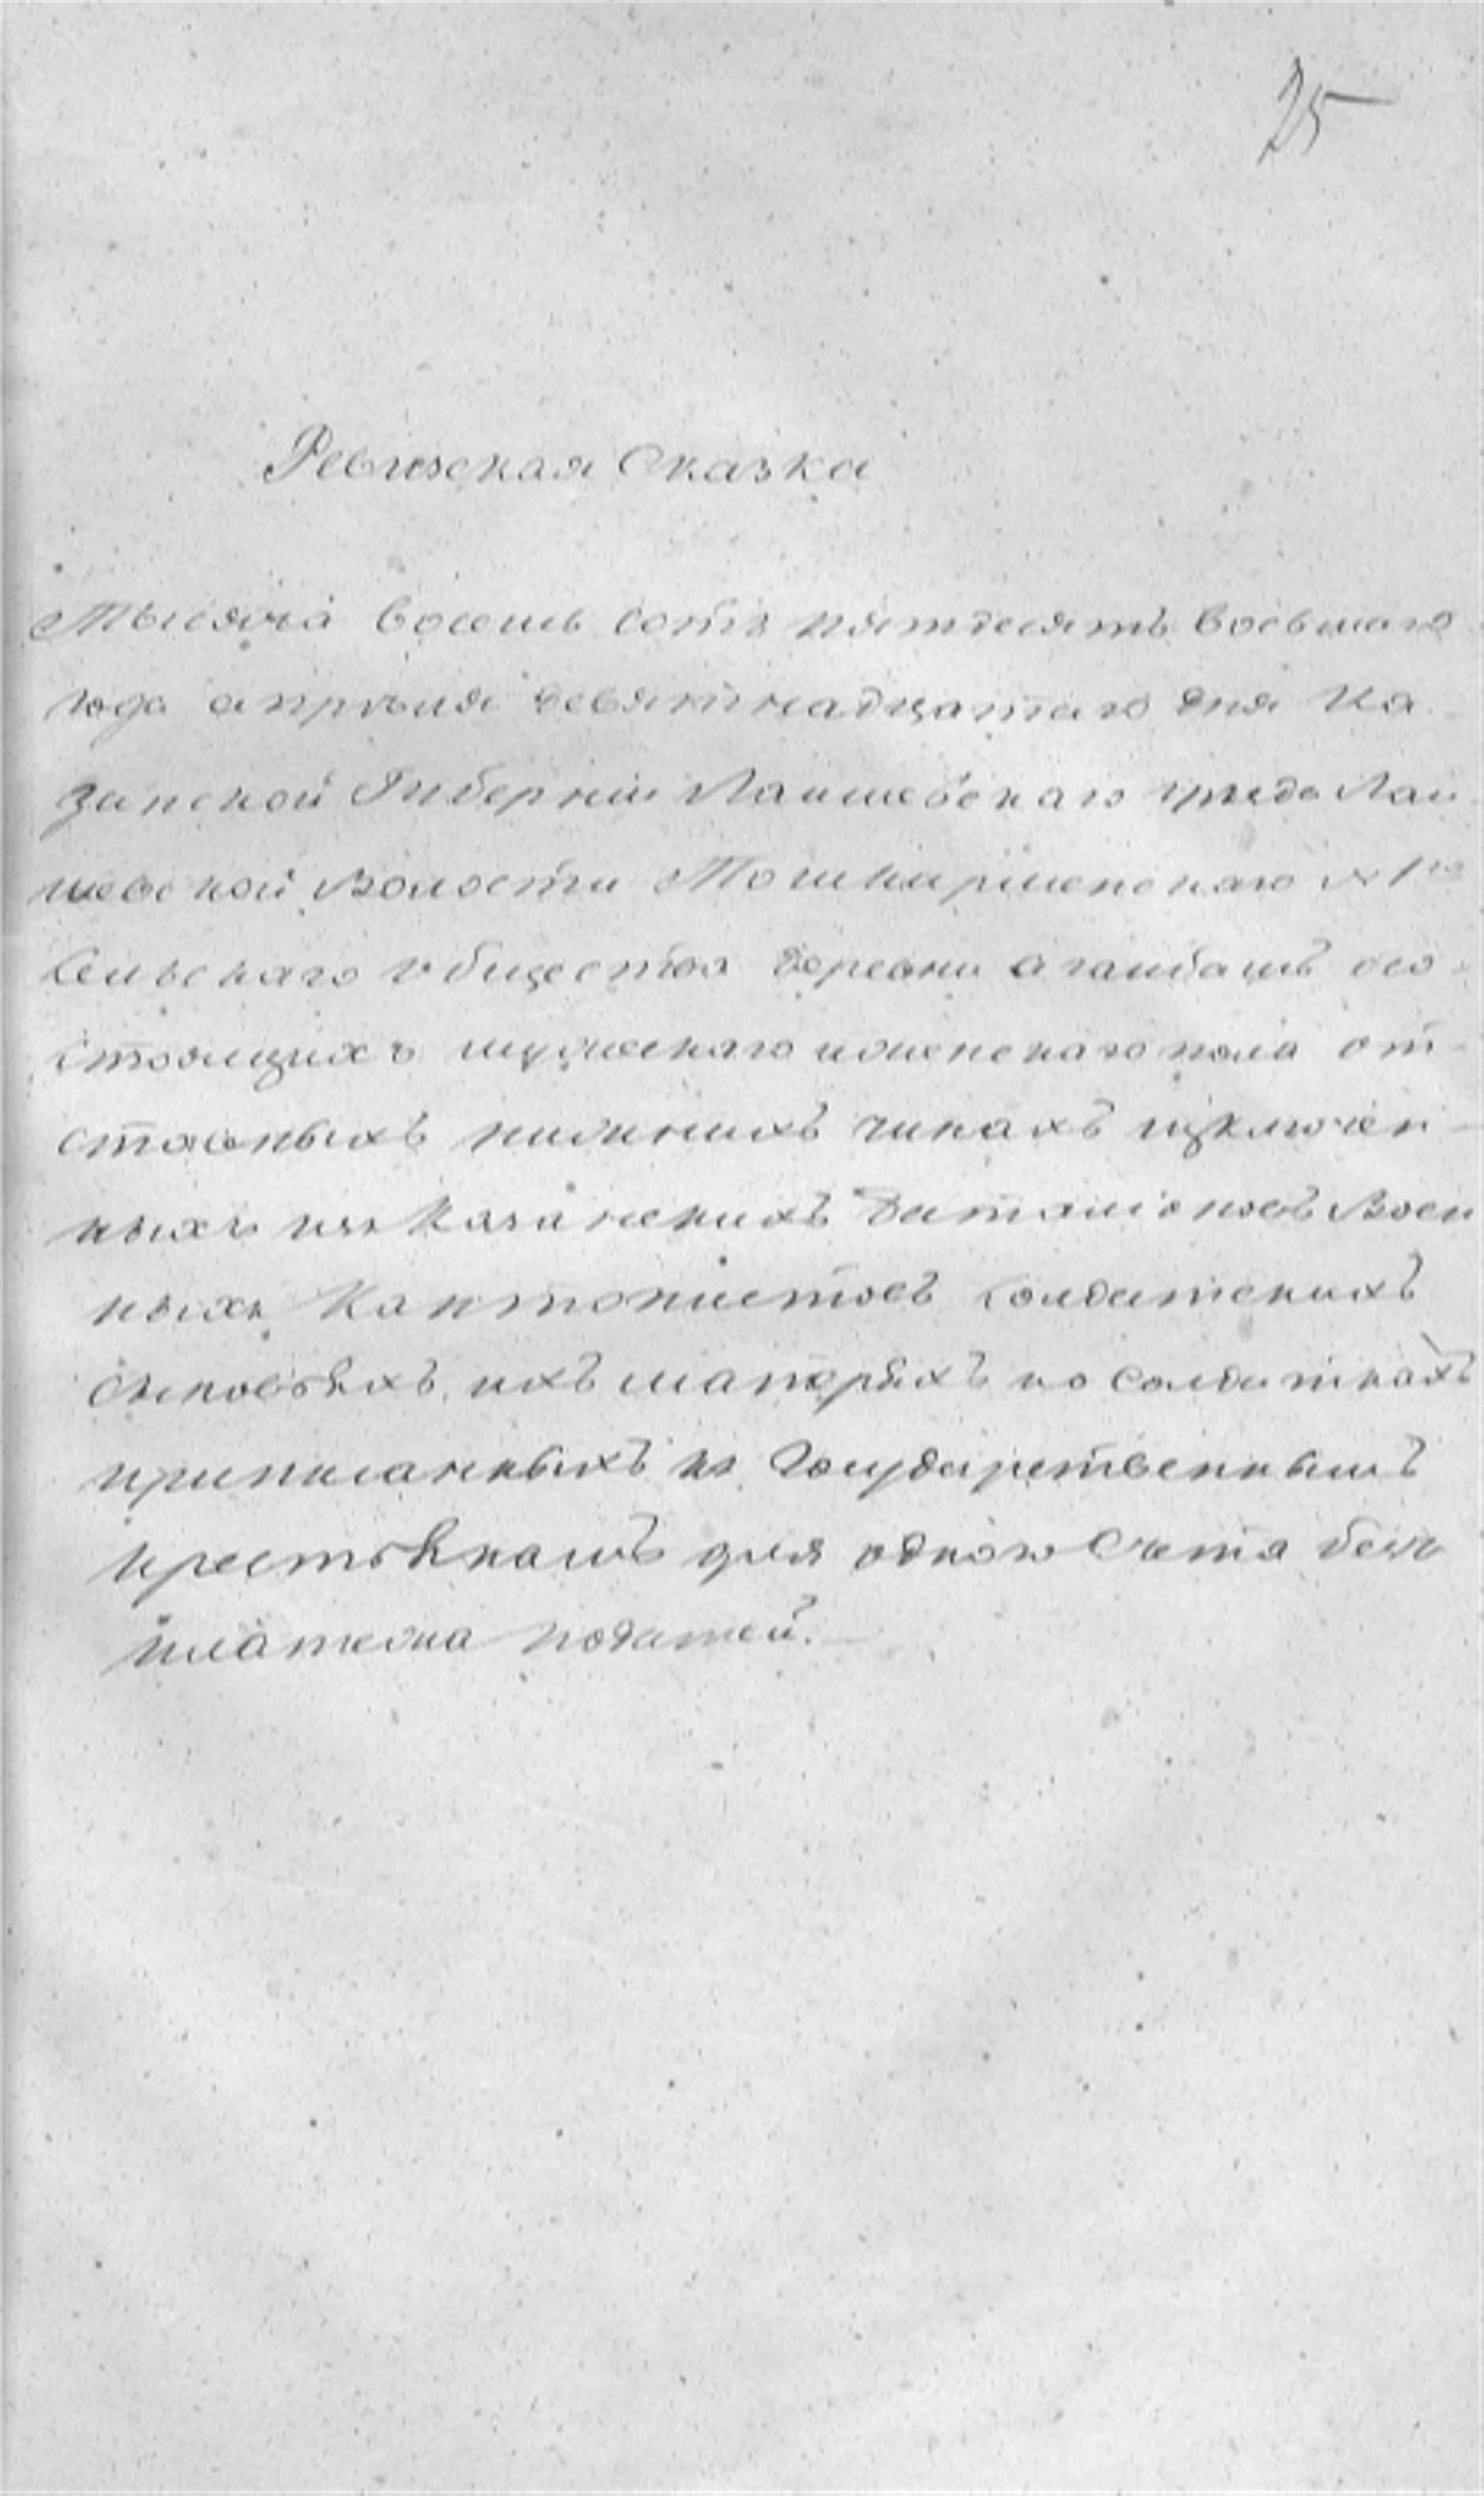 25
Ревизская Сказка
Тысяча восемь сотъ пятдесятъ восьмаго
года апрѣля девятнадцатаго дня Ка
занской Губерніи Лаишевскаго уезда Лаи
шевской Волости Ташкирменскаго
Сельскаго общества деревни со
стоящихъ мужескаго и женскаго пола от
ставныхъ нижнихъ чинахъ изключен
ныхъ изъ Казанскихъ баталіоновъ Воен
ныхъ Кантонистовъ солдатскихъ
сыновьяхъ ихъ матеряхъ по солдаткахъ
приписанныхъ къ Государственнымъ
крестьянамъ для одного Счета безъ
платежа податей.